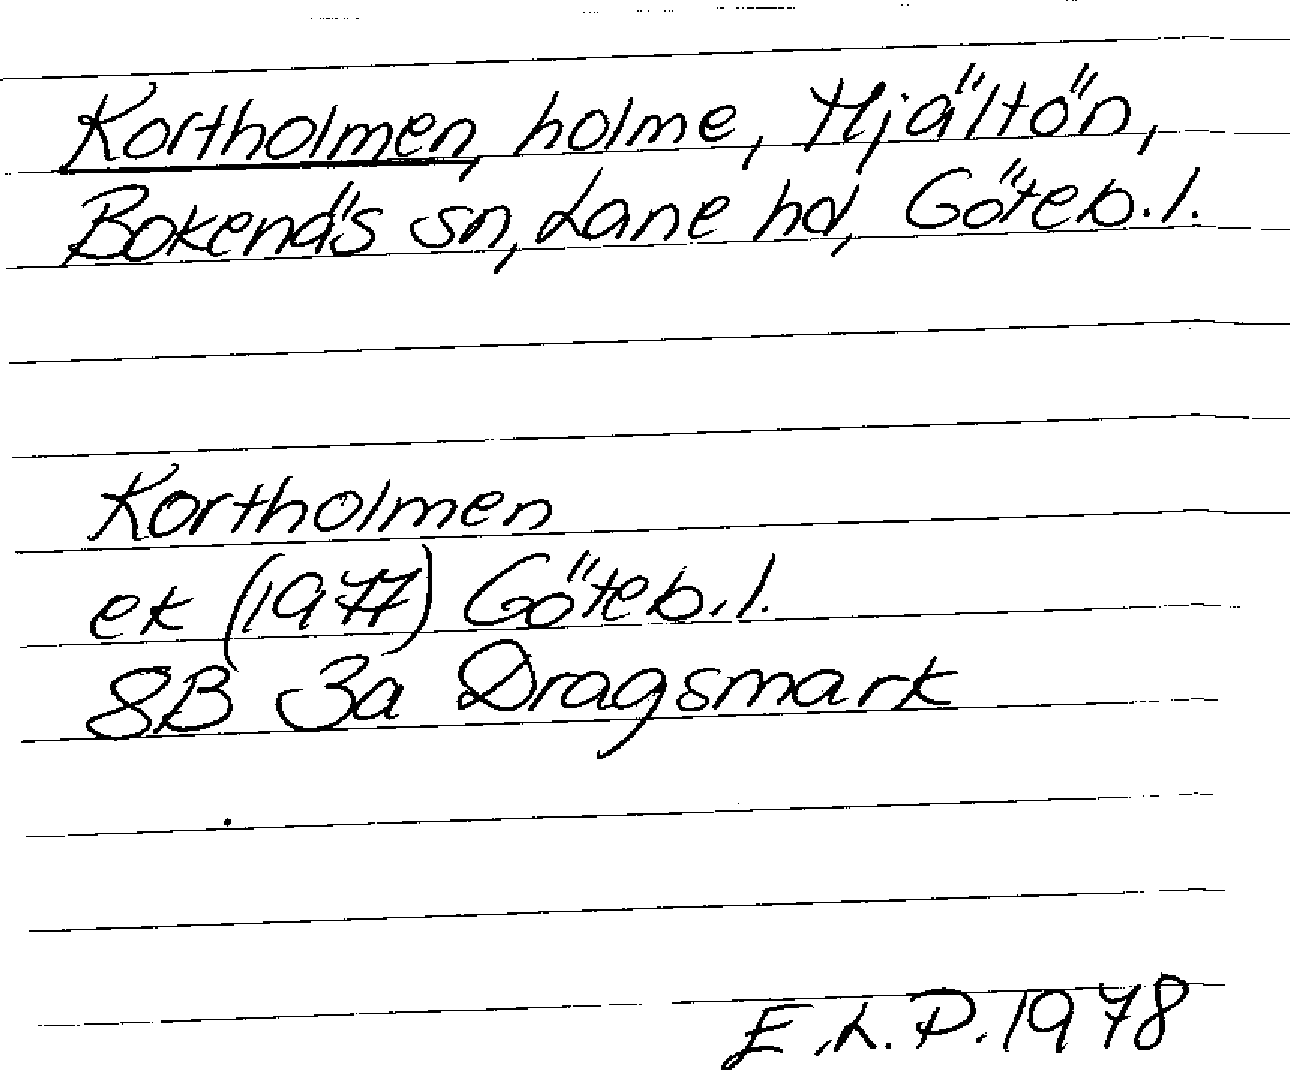 Kortholmen, holme, Hjältön,
Bokenäs sn, Lane hd, Göteb.l.
Kortholmen
ek (1977) Göteb.l.
8B 3a Dragsmark
E.L.P. 1978